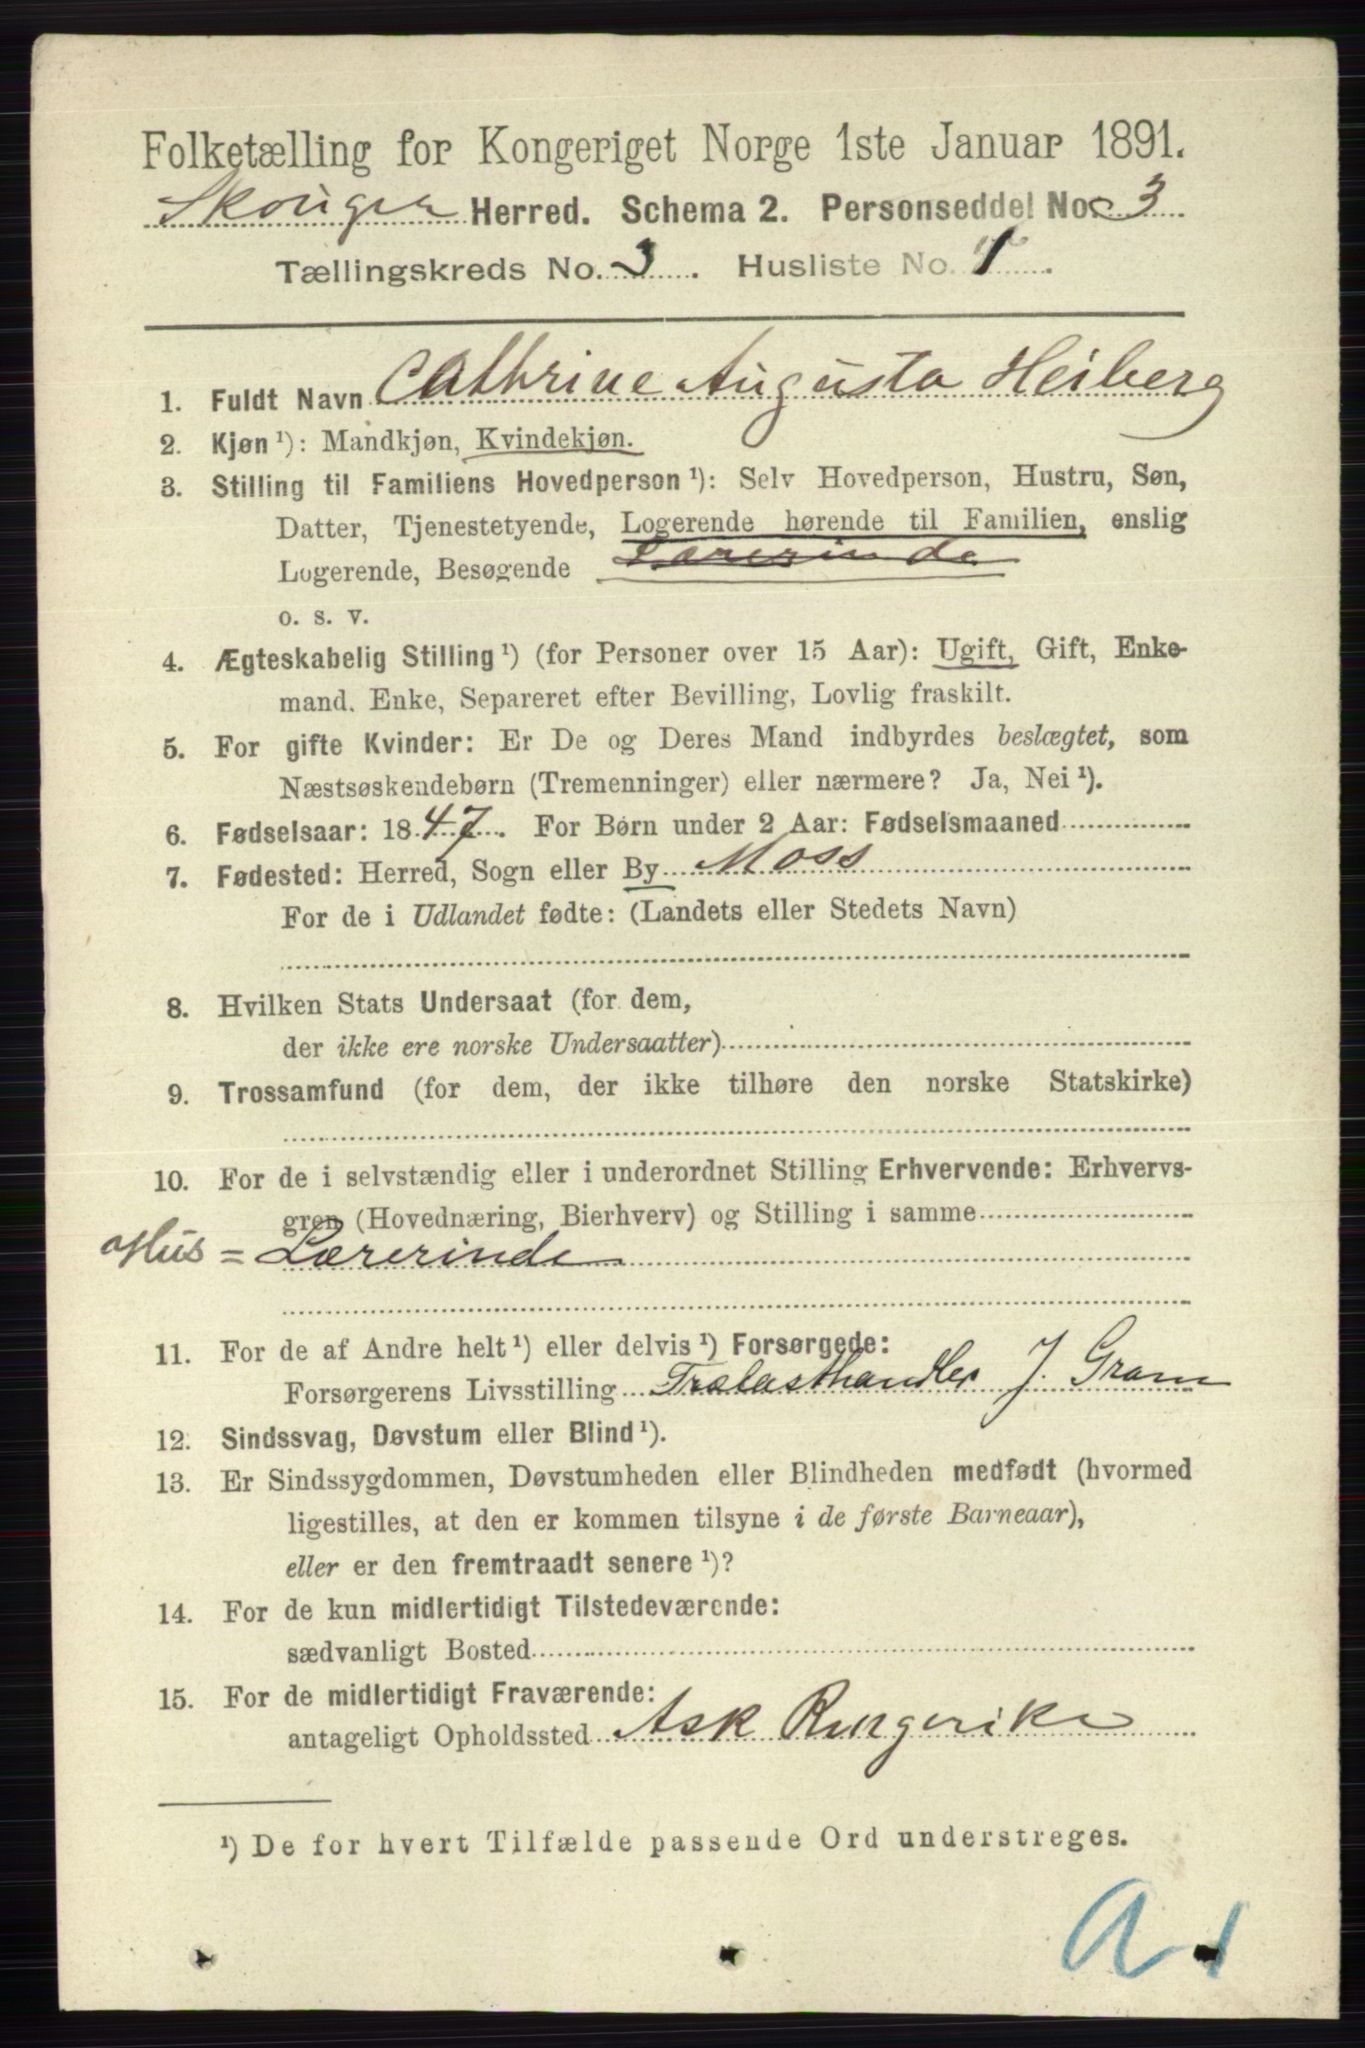 Folketælling for Kongeriget Norge 1ste Januar 1891.
Skouger Herred. Schema 2. Personseddel No. 3
Tællingskreds No. 3. Husliste No. 1.
1. Fuldt Navn Cathrine Augusta Heiberg
2. Kjøn ¹): Mandkjøn, Kvindekjøn.
3. Stilling til Familiens Hovedperson ¹): Selv Hovedperson, Hustru, Søn,
Datter, Tjenestetyende, Logerende hørende til Familien, enslig
Logerende, Besøgende Lærerinde
o. s. v.
4. Ægteskabelig Stilling ¹) (for Personer over 15 Aar): Ugift, Gift, Enke-
mand, Enke, Separeret efter Bevilling, Lovlig fraskilt.
5. For gifte Kvinder: Er De og Deres Mand indbyrdes beslægtet, som
Næstsøskendebørn (Tremenninger) eller nærmere? Ja, Nei ¹).
6. Fødselsaar: 1847. For Børn under 2 Aar: Fødselsmaaned
7. Fødested: Herred, Sogn eller By Moss
For de i Udlandet fødte: (Landets eller Stedets Navn)
8. Hvilken Stats Undersaat (for dem,
der ikke ere norske Undersaatter)
9. Trossamfund (for dem, der ikke tilhøre den norske Statskirke)
10. For de i selvstændig eller i underordnet Stilling Erhvervende: Erhvervs-
gren (Hovednæring, Bierhverv) og Stilling i samme
Hus = Lærerinde
11. For de af Andre helt ¹) eller delvis ¹) Forsørgede:
Forsørgerens Livsstilling Trælasthandler J. Gram
12. Sindssvag, Døvstum eller Blind ¹).
13. Er Sindssygdommen, Døvstumheden eller Blindheden medfødt (hvormed
ligestilles, at den er kommen tilsyne i de første Barneaar),
eller er den fremtraadt senere ¹)?
14. For de kun midlertidigt Tilstedeværende:
sædvanligt Bosted
15. For de midlertidigt Fraværende:
antageligt Opholdssted Ask Ringerike
¹) De for hvert Tilfælde passende Ord understreges.
A 1